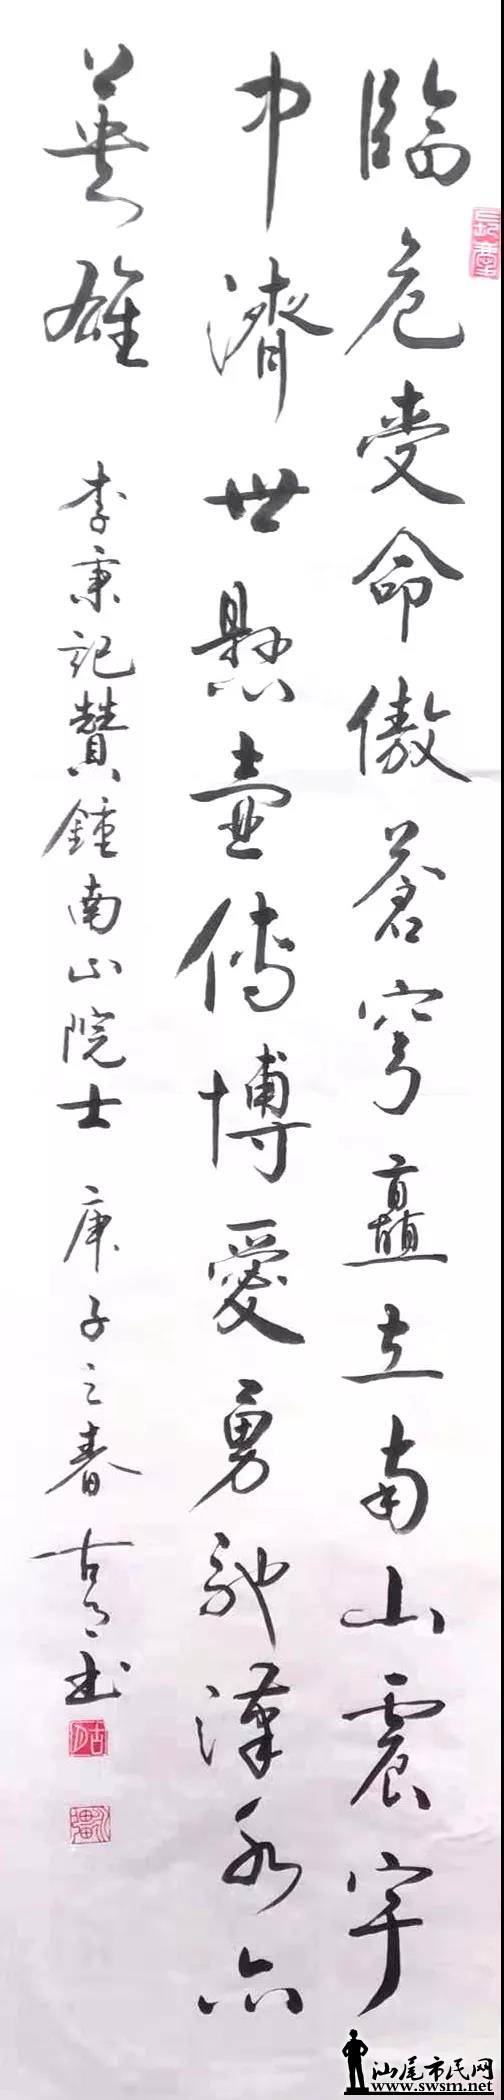 臨危受命傲蒼穹矗立南山震宇
中濟世懸壺傳博愛勇馳漢水亦
英雄
李秉記贊鍾南山院士 庚子之春 古
汕尾市民网
www.swsm.net